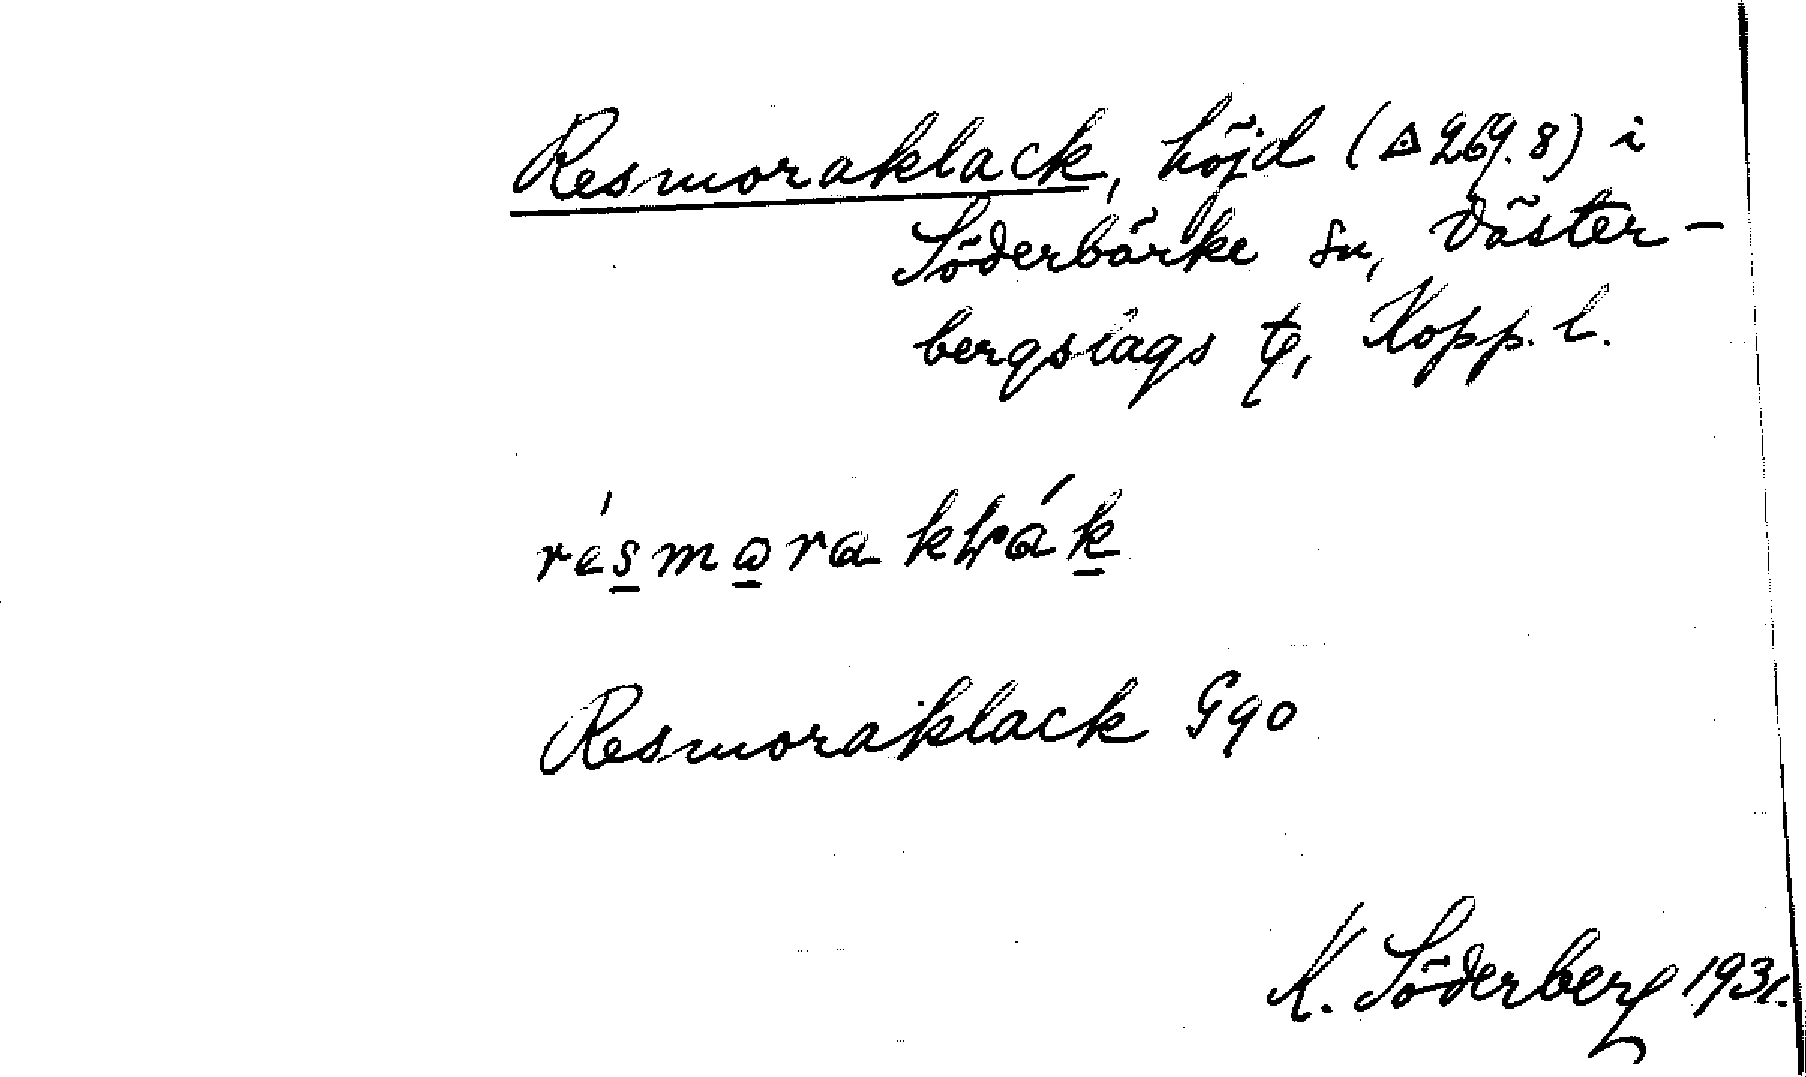 Resmoraklack, höjd (△ 269.8) i
Söderbärke sn, Väster-
bergslags tg, Kopp. l.
résmora klák
Resmoraklack Ggo
K. Söderberg 1931.